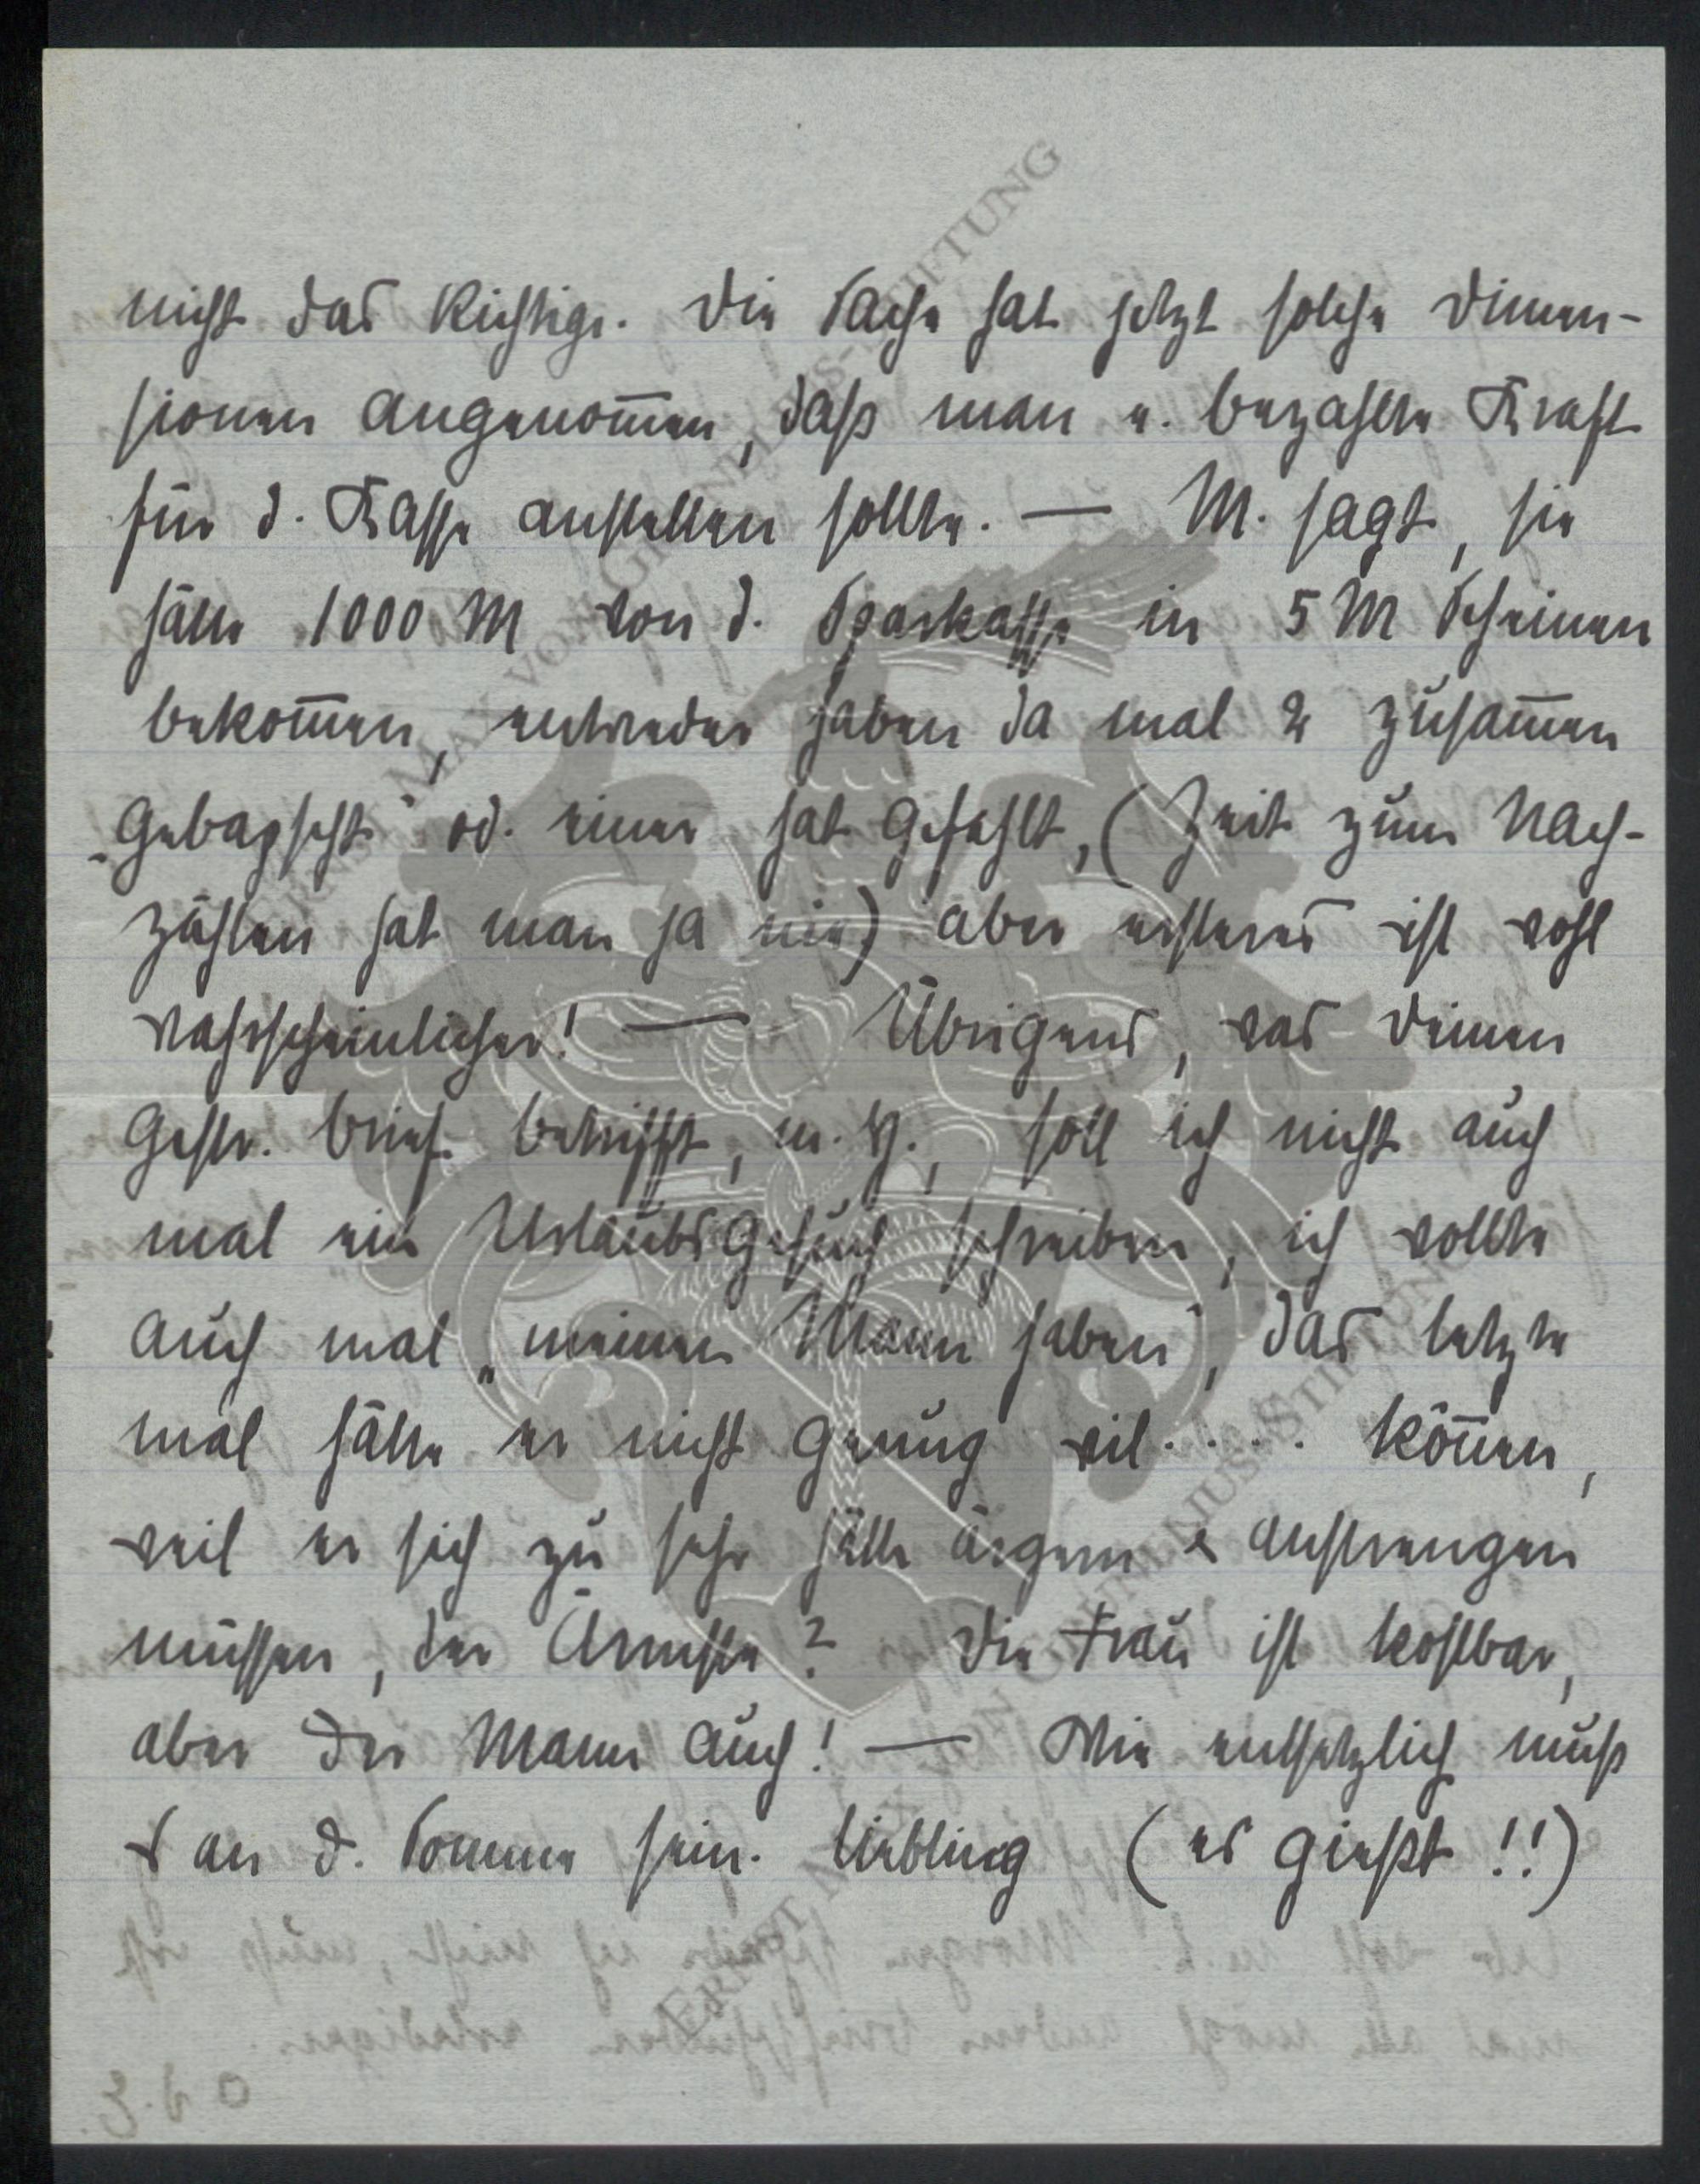 nicht das Richtige. Die Sache hat jetzt solche Dimen-
sionen angenom̅en, daß man e. bezahlte Kraft
für d. Kasse anstellen sollte. — M. sagt, sie
hätte 1000 M von d. Sparkasse in 5 M Scheinen
bekom̅en, entweder haben da mal 2 zusam̅en
„gebappscht“ od. einer hat gefehlt, (Zeit zum Nach-
zählen hat man ja nie) aber ersteres ist wohl
wahrscheinlicher! — Übrigens, was Deinen
gestr. Brief betrifft, m. H., soll ich nicht auch
mal ein Urlaubsgesuch schreiben, ich wollte
auch mal „meinen Mann haben“, das letzte
mal hätte er nicht genug wil..... kön̅en,
weil er sich zu sehr hätte ärgern & anstrengen
müssen, der Ärmste? Die Frau ist kostbar,
aber der Mann auch! — Wie entsetzlich muß
es an d. Somme sein. Liebling (es gießt!!)
ERNST MAX VON GRUNELIUS-STIFTUNG
ERNST MAX VON GRUNELIUS-STIFTUNG